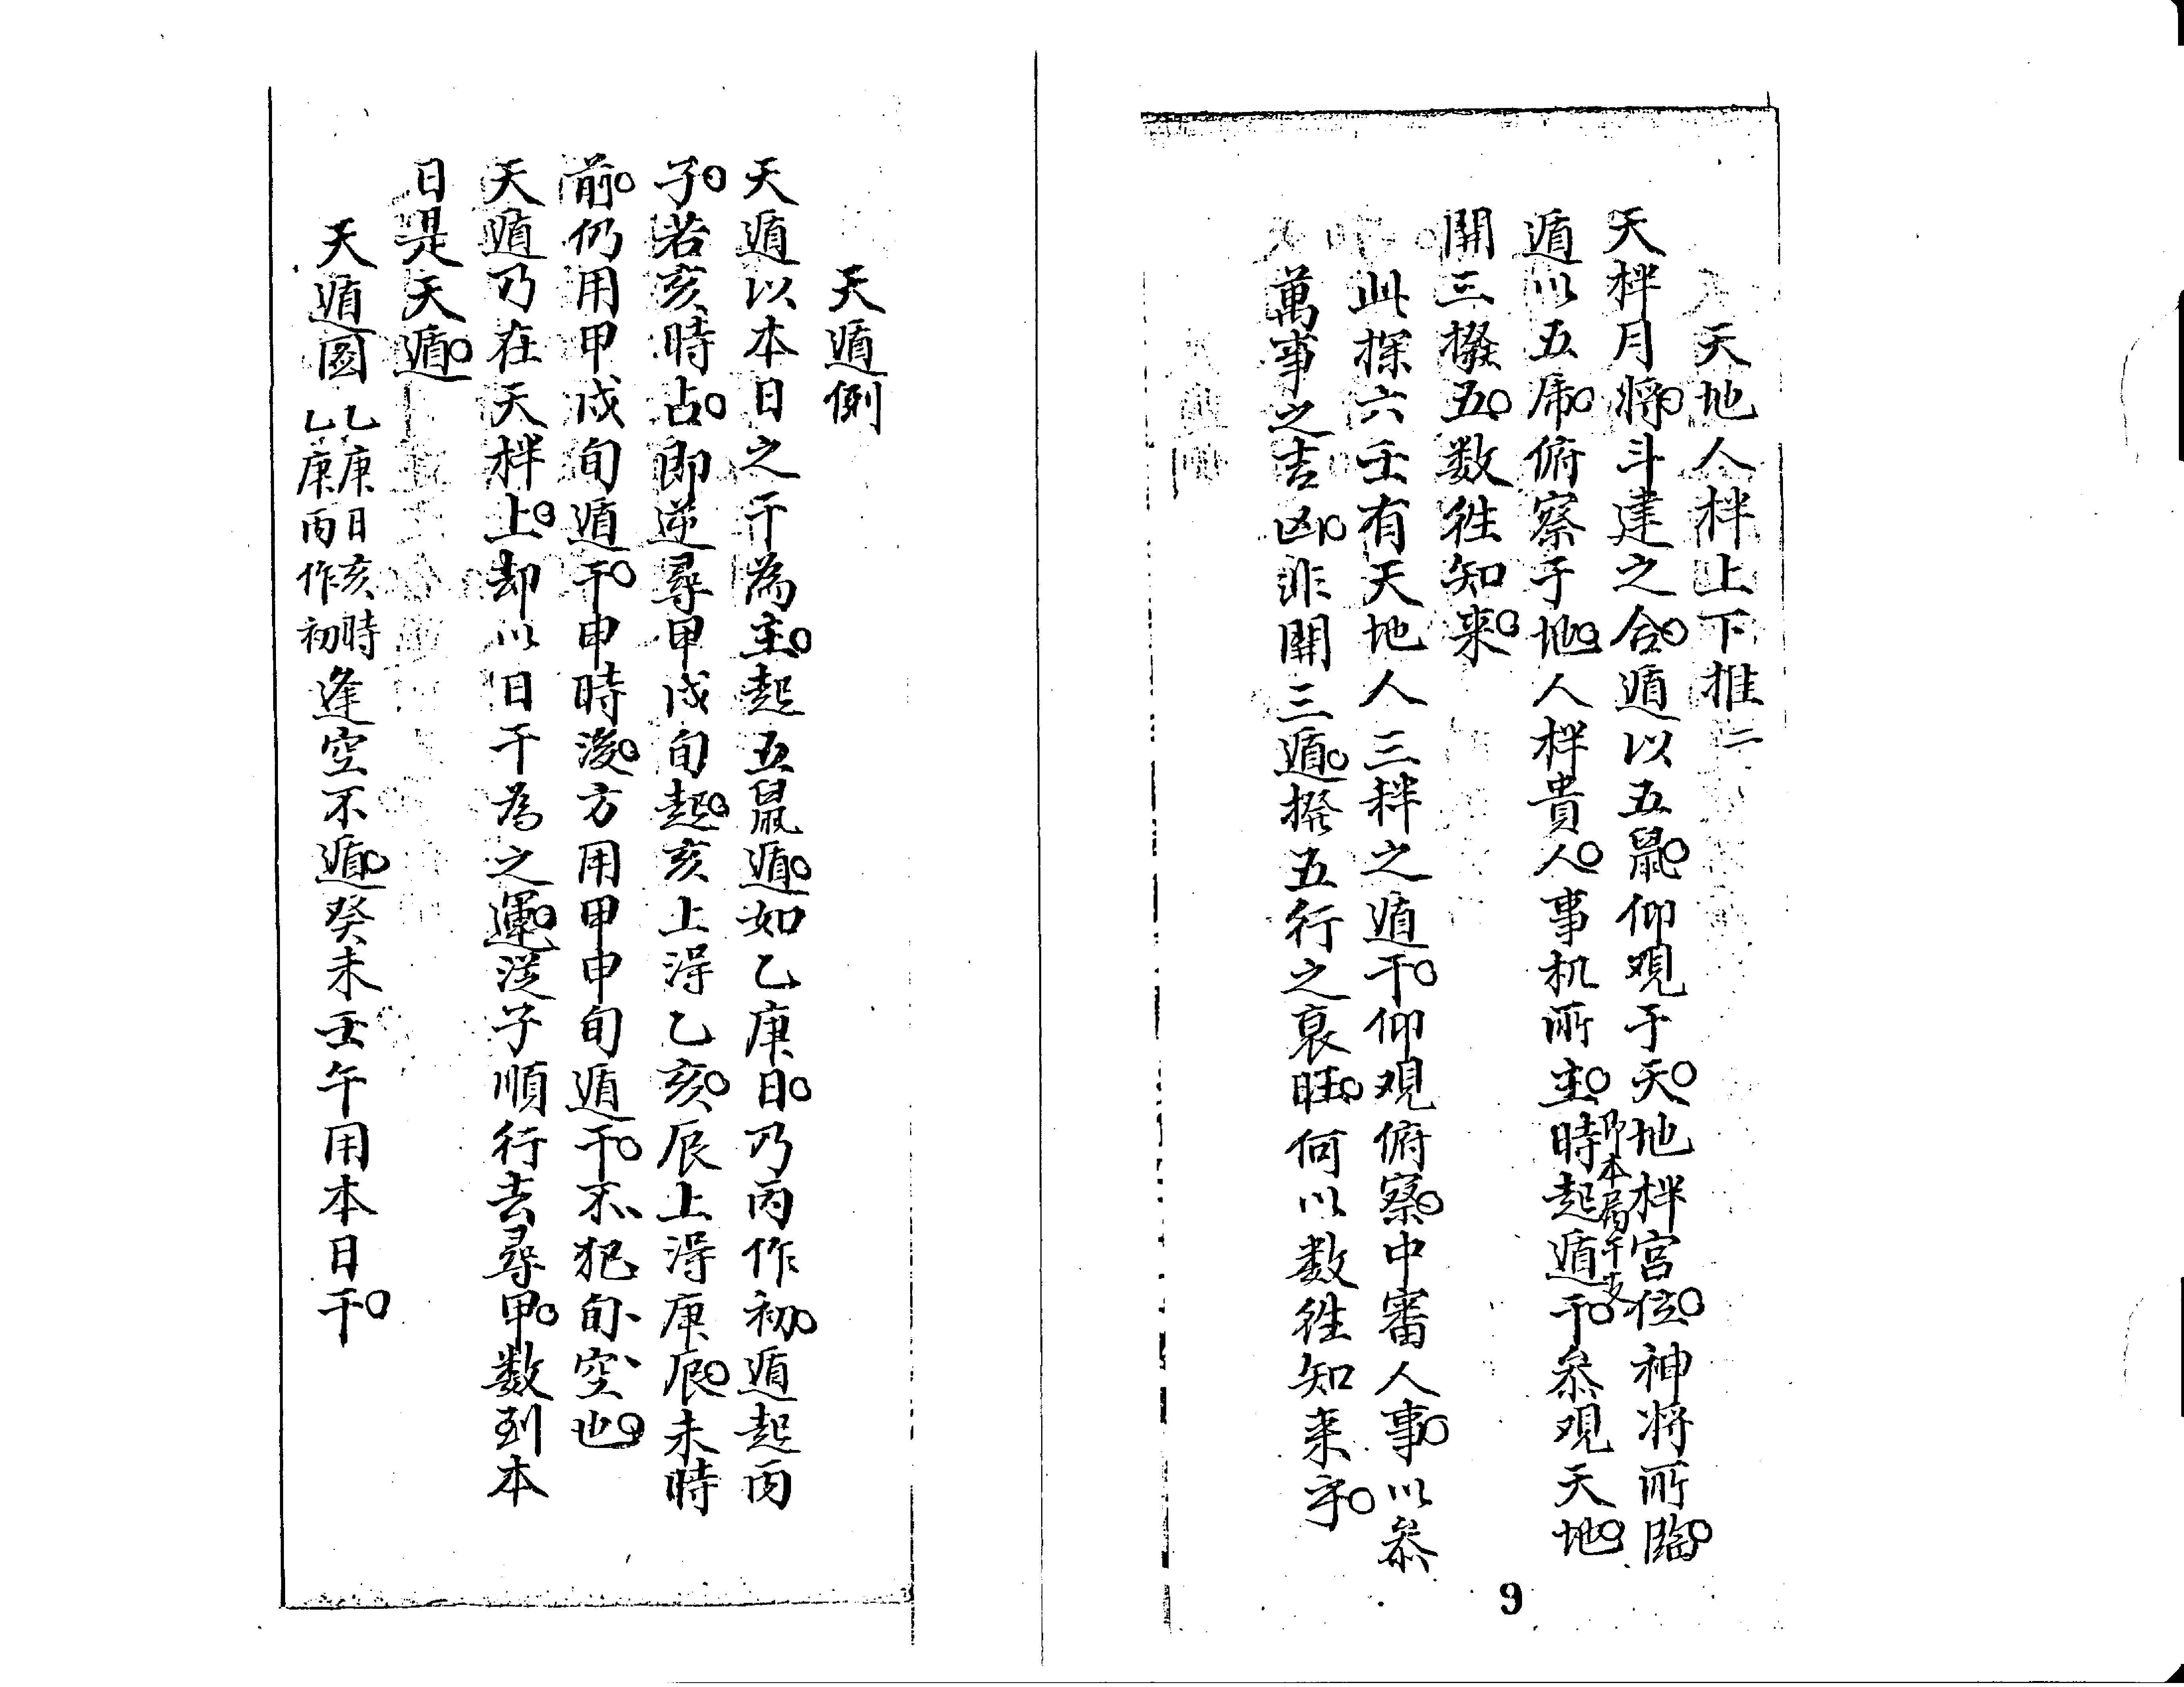 天地人柈上下推二
天柈月將。斗建之合。遁以五鼠。仰观于天。地柈宫位。神将所臨。
即本局干支
遁以五虎。俯察于地。人柈貴人。事机所主。時起遁干。叅观天地。
開三撥五。数徃知来。
此探六壬有天地人三柈之遁干。仰观俯察。中審人事。以叅
萬事之吉凶。非開三遁。撥五行之衰旺。何以数徃知来乎。
9
天遁例
天遁以本日之干為主。起五鼠遁。如乙庚日。乃丙作初。遁起丙
子。若亥時占。即逆尋甲戌旬起。亥上淂乙亥。辰上淂庚辰。未時
前。仍用甲戌旬遁干。申時後。方用甲申旬遁干。不犯旬空也。
天遁乃在天柈上。却以日干為之運。従子順行去尋甲。数到本
日是天遁。
天遁圖 乙庚日亥時
乙庚丙作初 逢空不遁。癸未壬午用本日干。